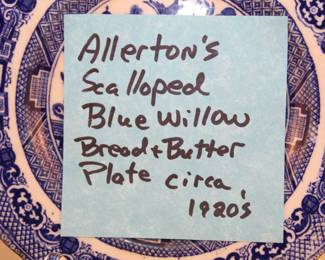 Allerton's
Scalloped
Blue Willow
Bread + Butter
Plate circa
1920's